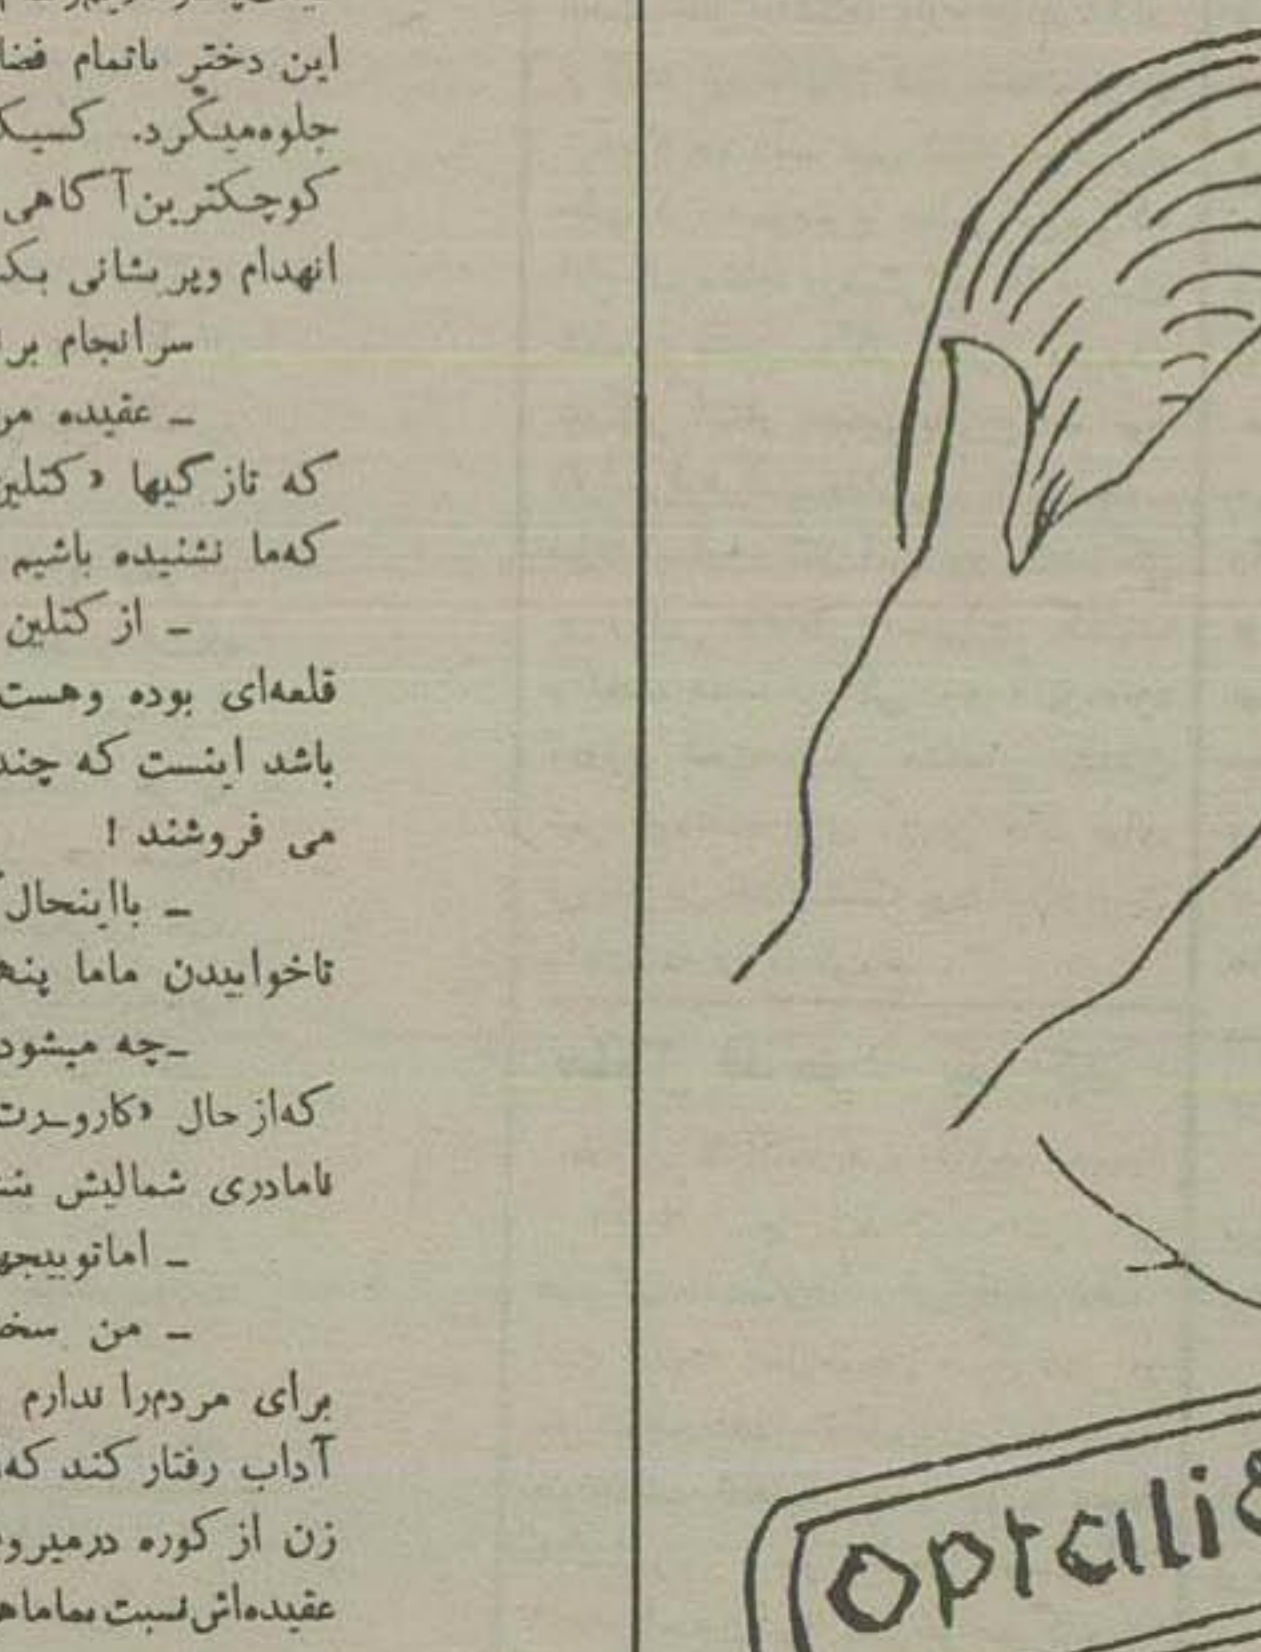 این دختر باتمام فضا
جلوه‌میکرد. کسیک
کوچکترین آگاهی
انهدام وپریشانی بک
سرانجام بر
ـ عقیده من
که تازگیها «کتلین
که‌ما نشنیده باشیم
ـ از کتلین
قلعه‌ای بوده وهست
باشد اینست که چند
می فروشند !
ـ بااینحال
تاخوابیدن ماما پنه
ـ چه میشود
که‌از حال «کاروـرت
نامادری شمالیش
ـ اماتوبیجه
ـ من سخ
برای مردم‌را ندارم
آداب رفتار کند که
زن از کوره درمیرو
عقیده‌اش نسبت بماما
optali